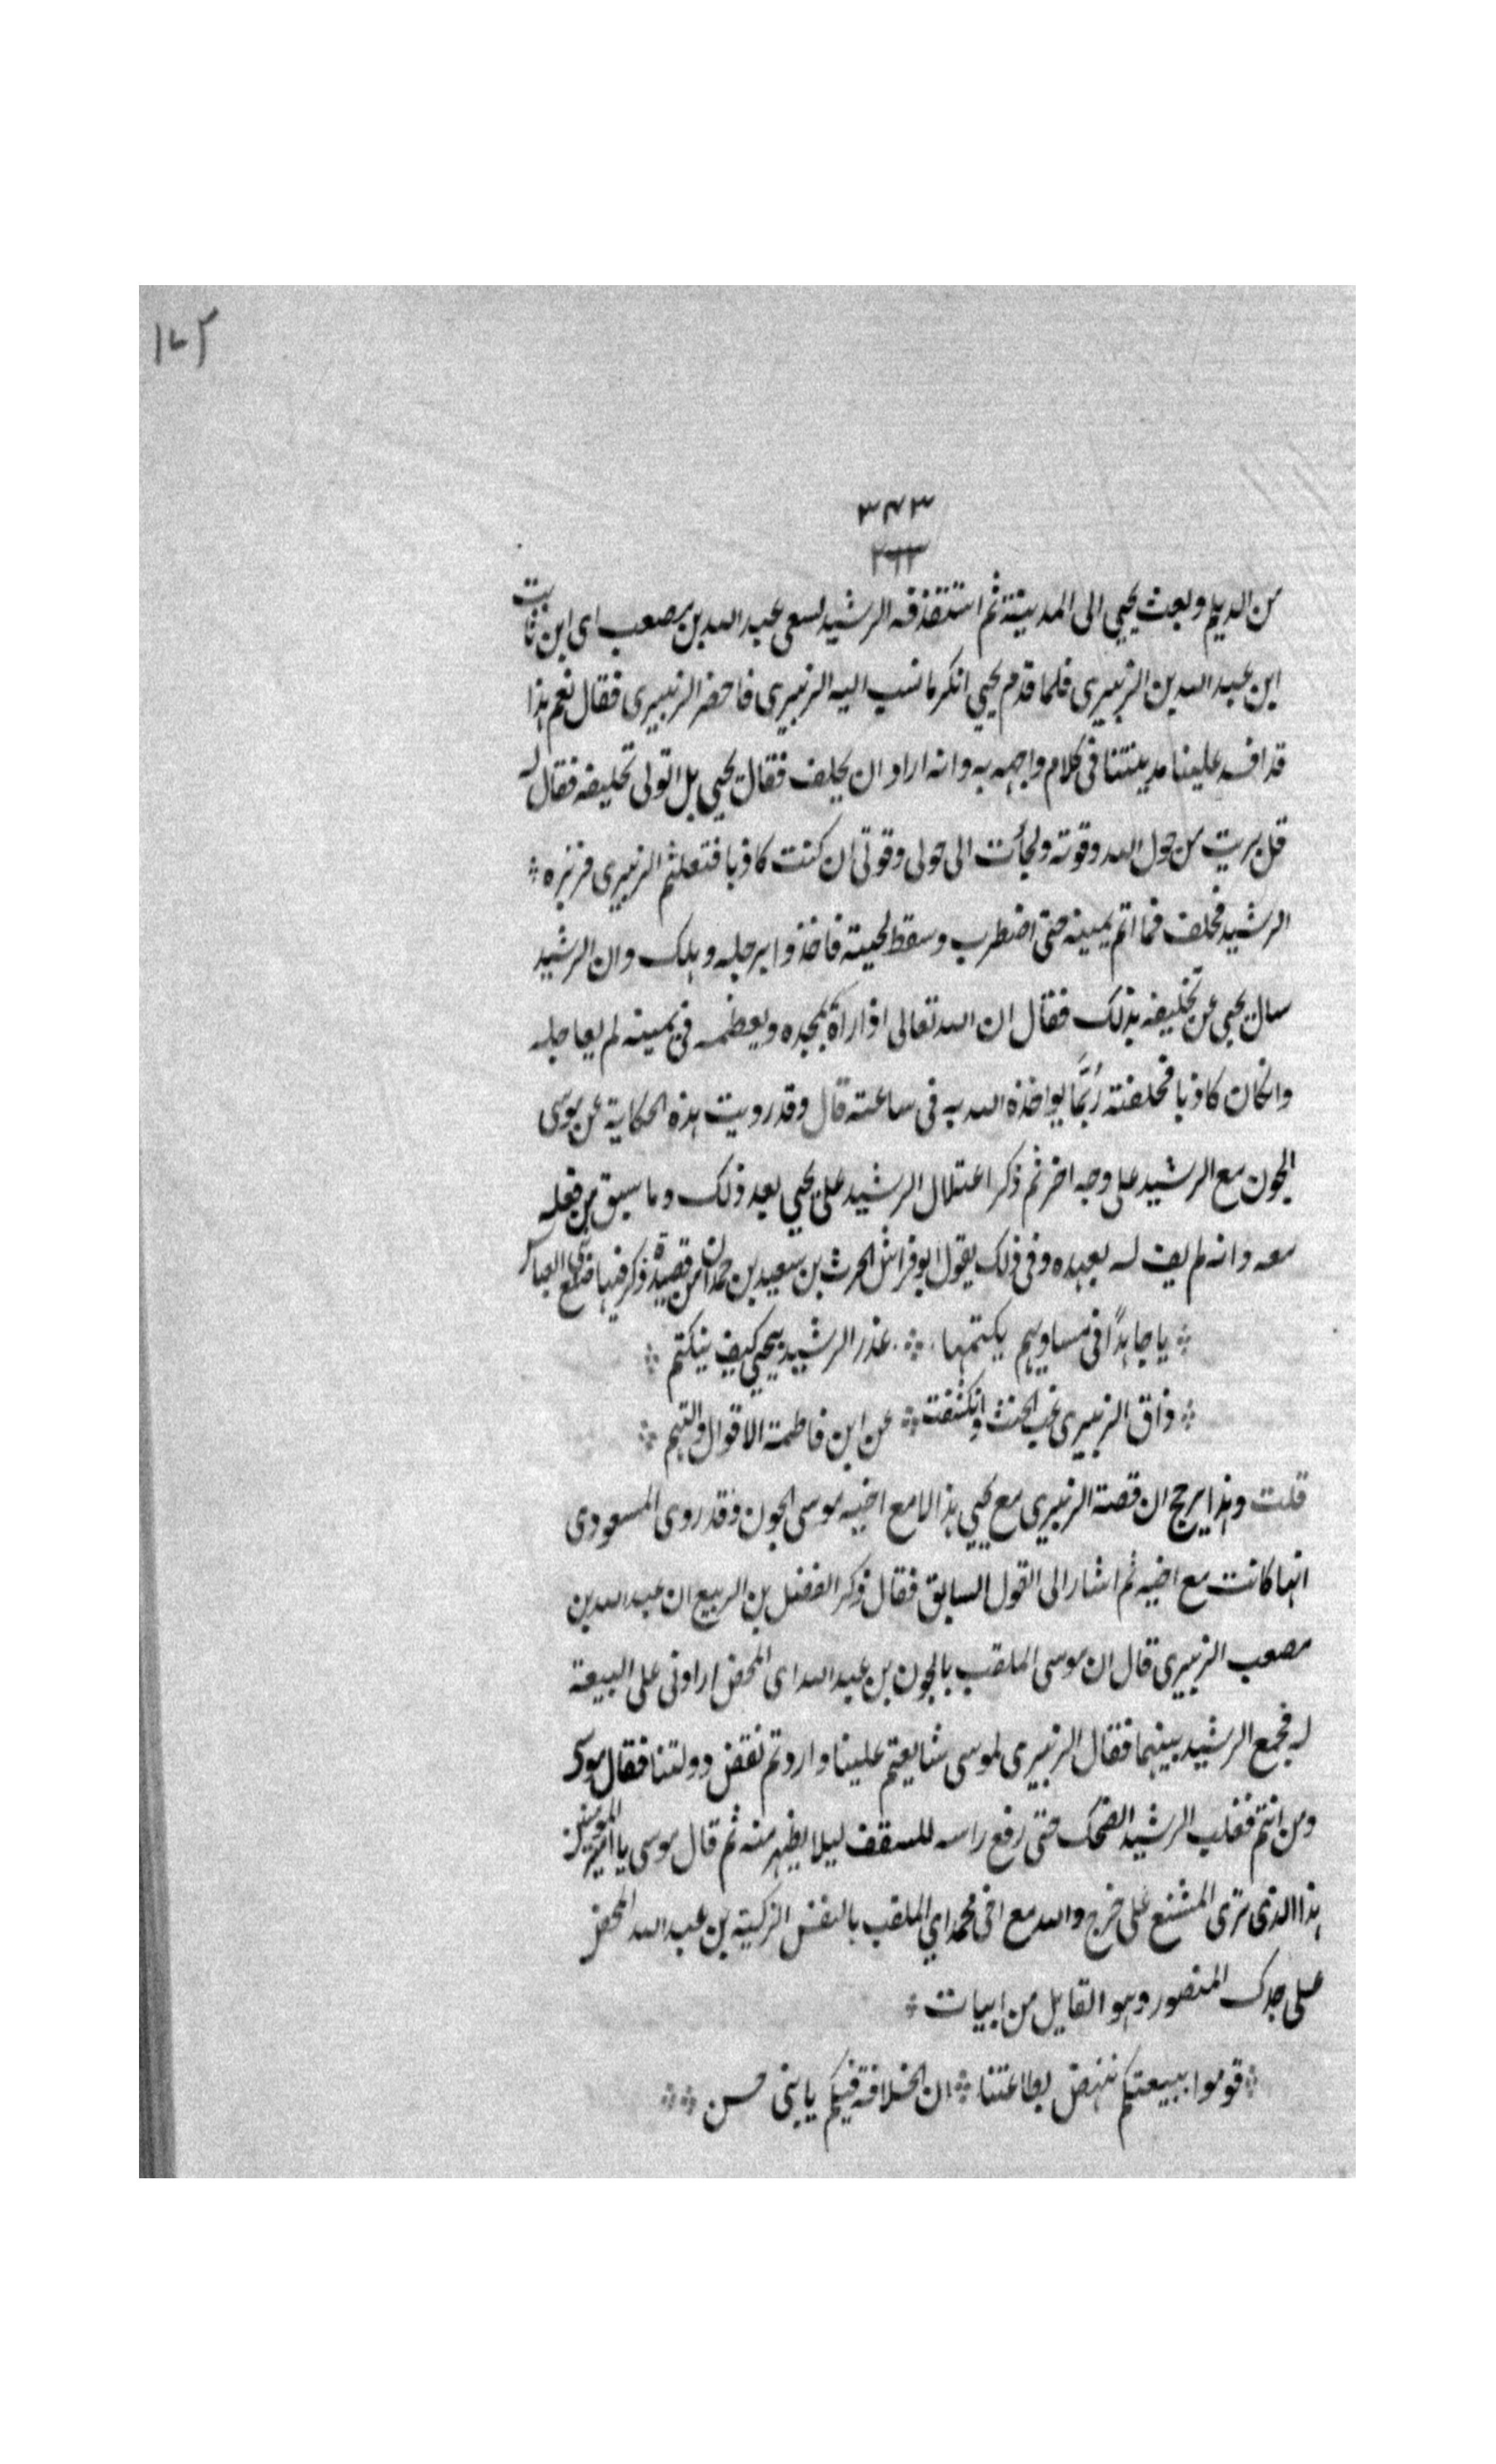 ١٧٢
٣٤٣
٢٦٢
من الديلم وبعث يحيى الى المدينة ثم استقذفه الرشيد لسعى عبد الله بن مصعب اى ابن ثابت
ابن عبد الله بن الزبيرى فلما قدم يحيي انكر ما نسب اليه الزبيرى فاحضر الزبيرى فقال نعم هذا
قد افسد علينا مدينتنا فى كلام واجهه به وانه اراد ان يحلف فقال يحيي بل اتولى تحليفه فقال له
قل بريت من حول الله وقوته ولجأت الى حولى وقوتى ان كنت كاذبا فتعلثم الزبيرى فزبره
الرشيد فحلف فما اتم يمينه حتى اضطرب وسقط لجنبه فاخذوا برجله وهلك وان الرشيد
سال يحيى عن تحليفه بذلك فقال ان الله تعالى اذا رآه يمجده ويعظمه فى يمينه لم يعاجله
وان كان كاذبا فحلفته رُبَّما يواخذه الله به فى ساعته قال وقد رويت هذه الحكاية عن موسى
الجون مع الرشيد على وجه اخر ثم ذكر اعتلال الرشيد على يحيي بعد ذلك وما سبق من فعله
معه وانه لم يف له بعهده وفى ذلك يقول ابو فراس الحرث بن سعيد بن حمدان من قصيدة ذكر فيها صنايع العباس
يا جاهدًا فى مساويهم يكتمها غدر الرشيد بيحيي كيف ينكتم
ذاق الزبيرى غب الحنث وانكشفت عن ابن فاطمة الاقوال والتهم
قلت وهذا يرجح ان قصة الزبيرى مع يحيي هذا لا مع اخيه موسى الجون وقد روى المسعودى
انها كانت مع اخيه ثم اشار الى القول السابق فقال ذكر الفضل بن الربيع ان عبد الله بن
مصعب الزبيرى قال ان موسى الملقب بالجون بن عبد الله اى المحض ارادنى على البيعة
له فجمع الرشيد بينهما فقال الزبيرى لموسى شايعتم علينا واردتم نقض دولتنا فقال موسى
ومن انتم فغلب الرشيد الضحك حتى رفع راسه للسقف ليلا يظهر منه ثم قال موسى يا امير المومنين
هذا الذى ترى المشنع على خرج والله مع اخى محمد اي الملقب بالنفس الزكية بن عبد الله المحض
على جدك المنصور وهو القايل من ابيات
قوموا ببيعتكم ننهض بطاعتنا ان الخلافة فيكم يا بنى حسن